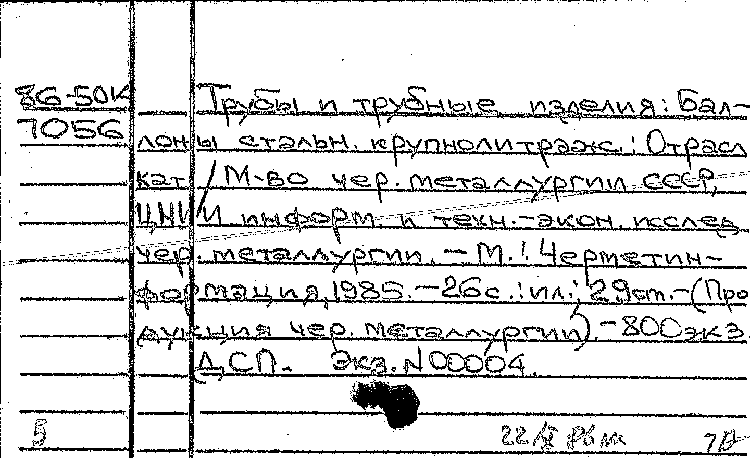 86-50К Трубы и трубные изделия: Бал-
7056 лоны стальн. крупнолитраж.: Отрасл
кат / М-во чер. металлургии СССР,
ЦНИИ информ. и техн.-экон. исслед
чер. металлургии. - М.: Черметин-
формация, 1985. - 26с.: ил.; 29 см. - (Про
дукция чер. металлургии). - 800 экз
ДСП. Экз. N 00004.
5 22 86